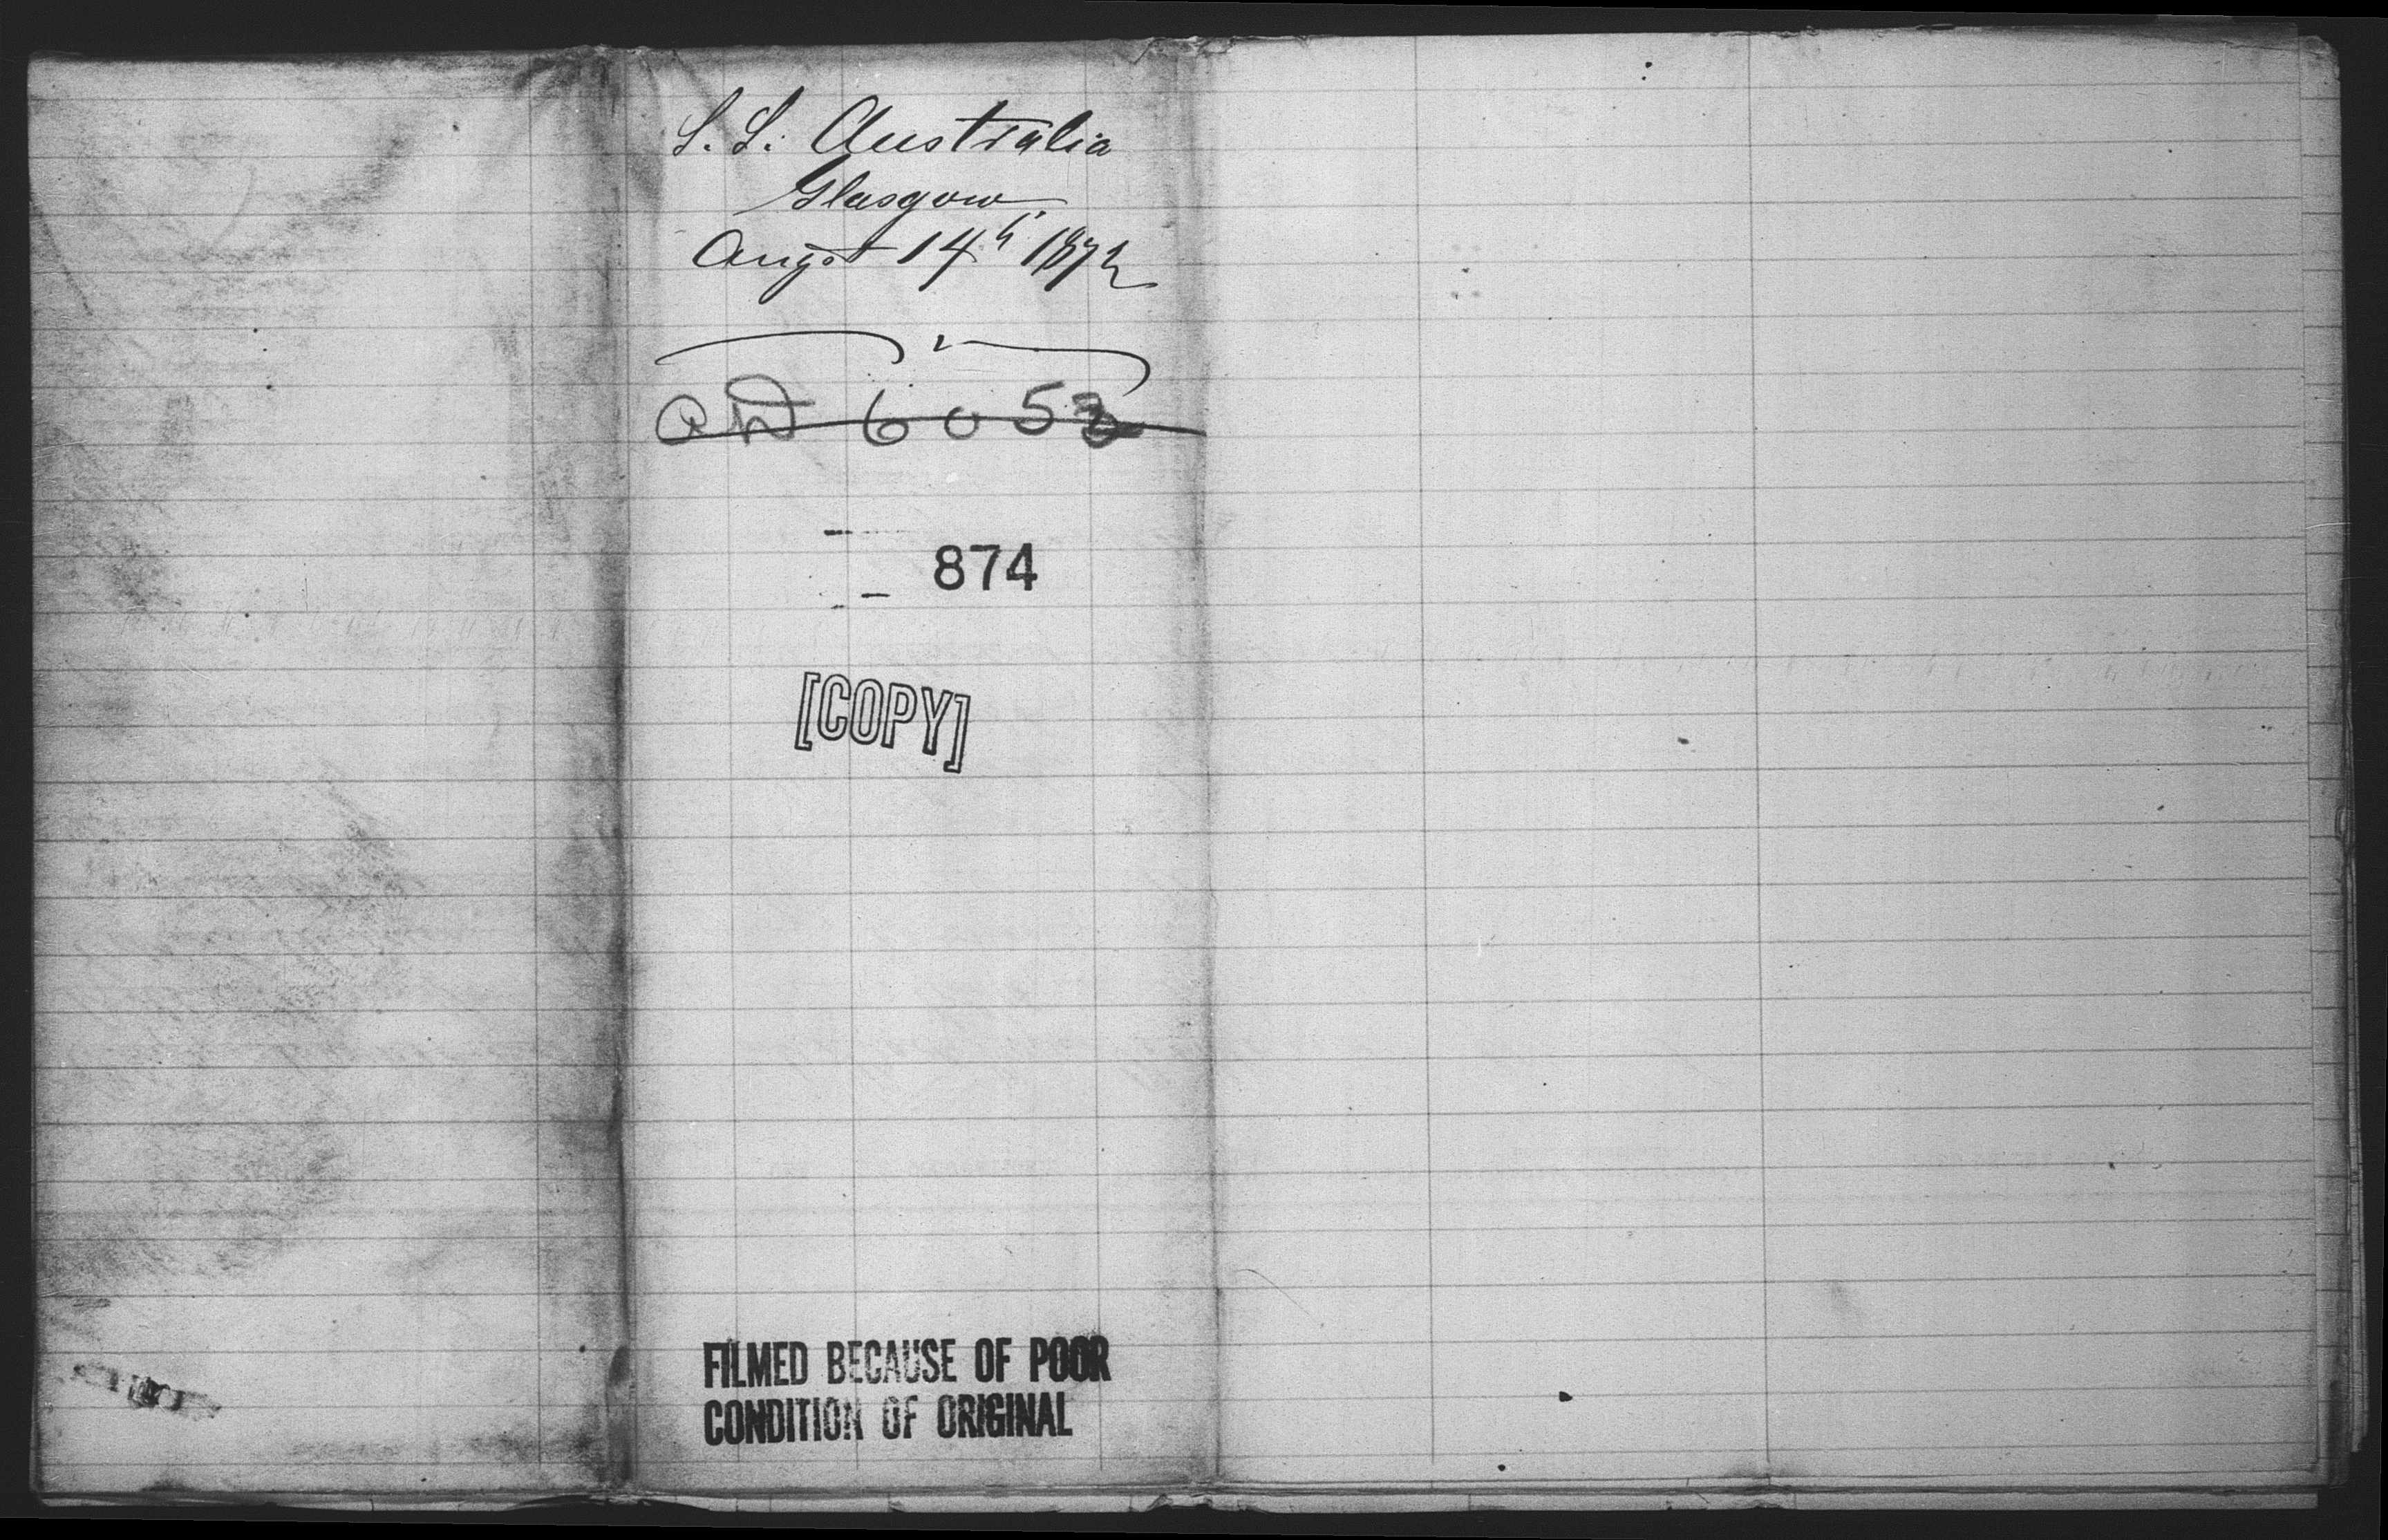 S.S. Australia
Glasgow
Augst 14th 1872
6053
874
[COPY]
FILMED BECAUSE OF POOR
CONDITION OF ORIGINAL